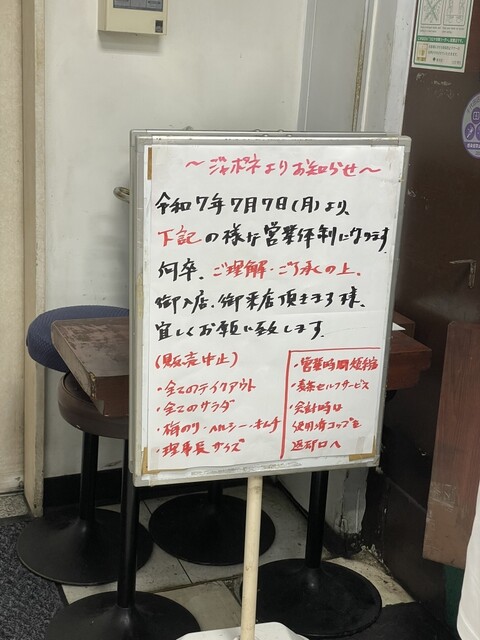 〜ジャポネよりお知らせ〜
令和7年7月7日(月)より、
下記の様な営業体制になります。
何卒、ご理解・ご了承の上、
御入店、御来店頂きます様、
宜しくお願い致します。
(販売中止)
・全てのテイクアウト
・全てのサラダ
・梅のり・ヘルシー・キムチ
・理事長サイズ
・営業時間短縮
・麦茶セルフサービス
・会計時は
使用済コップを
返却口へ